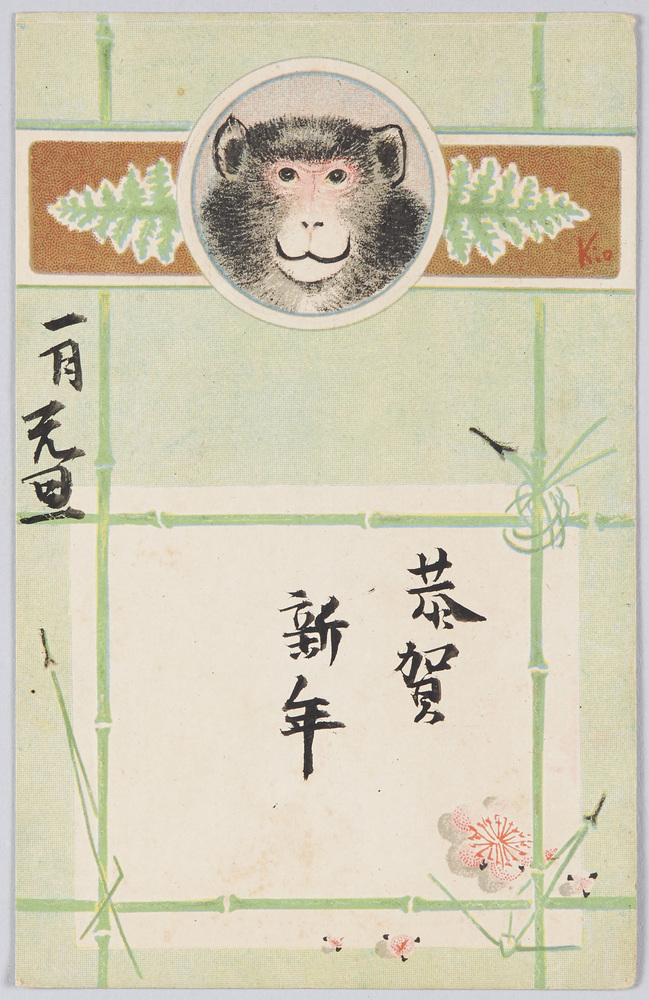 恭賀
新年
一月元旦
Kio